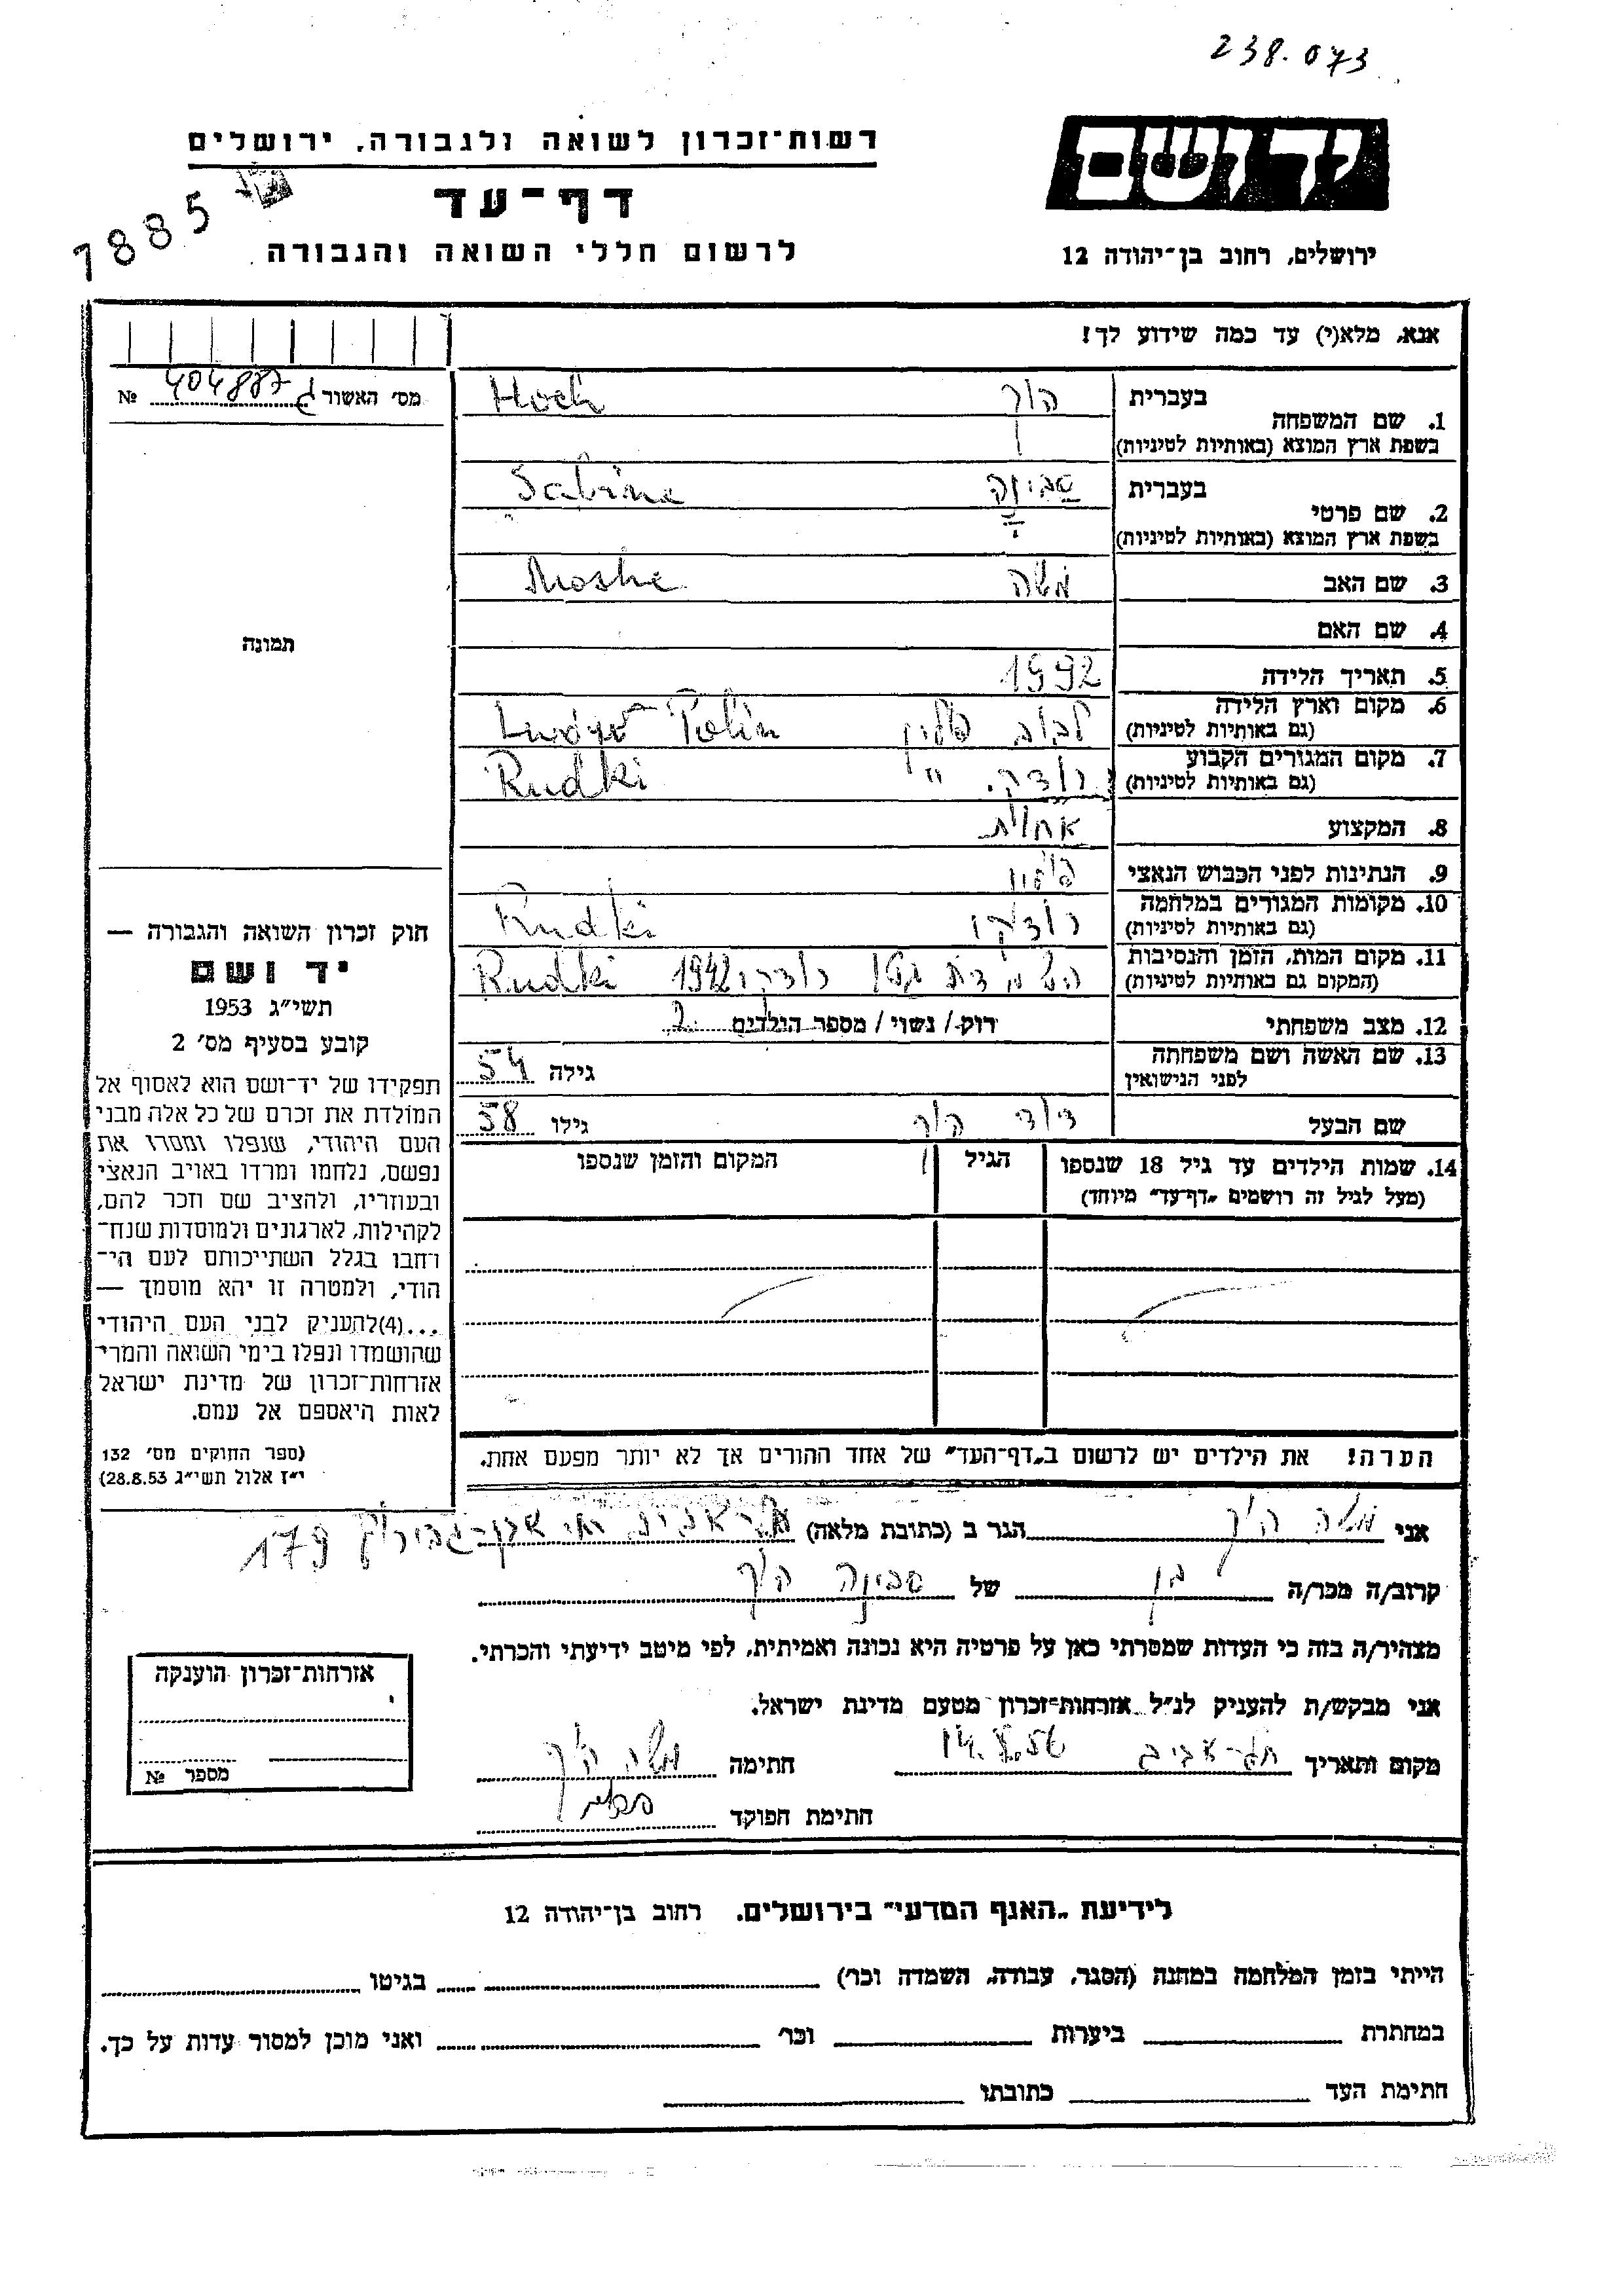 238.073
רשות־זכרון לשואה ולגבורה, ירושלים
יד ושם
דף־עד
1885
לרשום חללי השואה והגבורה
ירושלים, רחוב בן־יהודה 12
אנא, מלא(י) עד כמה שידוע לך!
מס׳ האשור 404887 №
1. שם המשפחה
בעברית הוך Hoch
בשפת ארץ המוצא (באותיות לטיניות)
2. שם פרטי
בעברית סבינה Sabina
בשפת ארץ המוצא (באותיות לטיניות)
3. שם האב משה Moshe
4. שם האם
תמונה
5. תאריך הלידה 1992
6. מקום וארץ הלידה
(גם באותיות לטיניות) לבוב פולין Polin
7. מקום המגורים הקבוע
(גם באותיות לטיניות) רודקי " Rudki
8. המקצוע אחות
9. הנתינות לפני הכבוש הנאצי
10. מקומות המגורים במלחמה
(גם באותיות לטיניות) רודקי Rudki
11. מקום המות, הזמן והנסיבות
(המקום גם באותיות לטיניות) רודקי 1942 Rudki
12. מצב משפחתי רוק / נשוי / מספר הילדים 2
13. שם האשה ושם משפחתה
לפני הנישואין גילה 54
שם הבעל דוד הוך גילו 58
14. שמות הילדים עד גיל 18 שנספו הגיל המקום והזמן שנספו
(מעל לגיל זה רושמים „דף־עד" מיוחד)
הערה! את הילדים יש לרשום ב„דף־העד" של אחד ההורים אך לא יותר מפעם אחת.
חוק זכרון השואה והגבורה —
יד ושם
תשי״ג 1953
קובע בסעיף מס׳ 2
תפקידו של יד־ושם הוא לאסוף אל
המולדת את זכרם של כל אלה מבני
העם היהודי, שנפלו ומסרו את
נפשם, נלחמו ומרדו באויב הנאצי
ובעוזריו, ולהציב שם וזכר להם,
לקהילות, לארגונים ולמוסדות שנח־
רחבו בגלל השתייכותם לעם הי־
הודי, ולמטרה זו יהא מוסמך —
...(4)להעניק לבני העם היהודי
שהושמדו ונפלו בימי השואה והמרי
אזרחות־זכרון של מדינת ישראל
לאות היאספם אל עמם.
(ספר החוקים מס׳ 132
י״ז אלול תשי״ג 28.8.53)
אני משה הוך הגר ב (כתובת מלאה) תל־אביב אבן־גבירול 179
קרוב/ה מכר/ה בן של סבינה הוך
מצהיר/ה בזה כי העדות שמסרתי כאן על פרטיה היא נכונה ואמיתית, לפי מיטב ידיעתי והכרתי.
אני מבקש/ת להעניק לנ״ל אזרחות־זכרון מטעם מדינת ישראל.
מקום ותאריך תל־אביב חתימה משה הוך
חתימת הפוקד
אזרחות־זכרון הוענקה
מספר №
לידיעת „האגף המדעי" בירושלים. רחוב בן־יהודה 12
הייתי בזמן המלחמה במחנה (הסגר, עבודה, השמדה וכו׳) בגיטו
במחתרת ביערות וכו׳ ואני מוכן למסור עדות על כך.
חתימת העד כתובתו